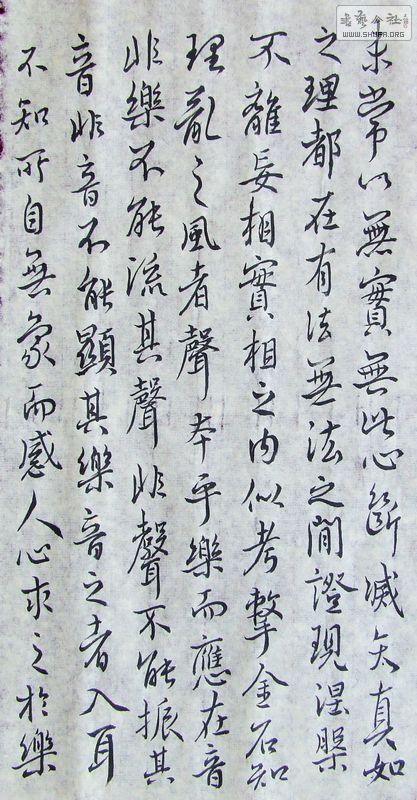 未常以無實無此心斷滅矣真如
之理都在有法無法之間證現涅槃
不離妄相實相之內似考擊金石知
理亂之風者聲本乎樂而應在音
非樂不能流其聲非聲不能振其
音非音不能顯其樂音之者入耳
不知所自無象而感人心求之於樂
WWW.SHUFA.ORG